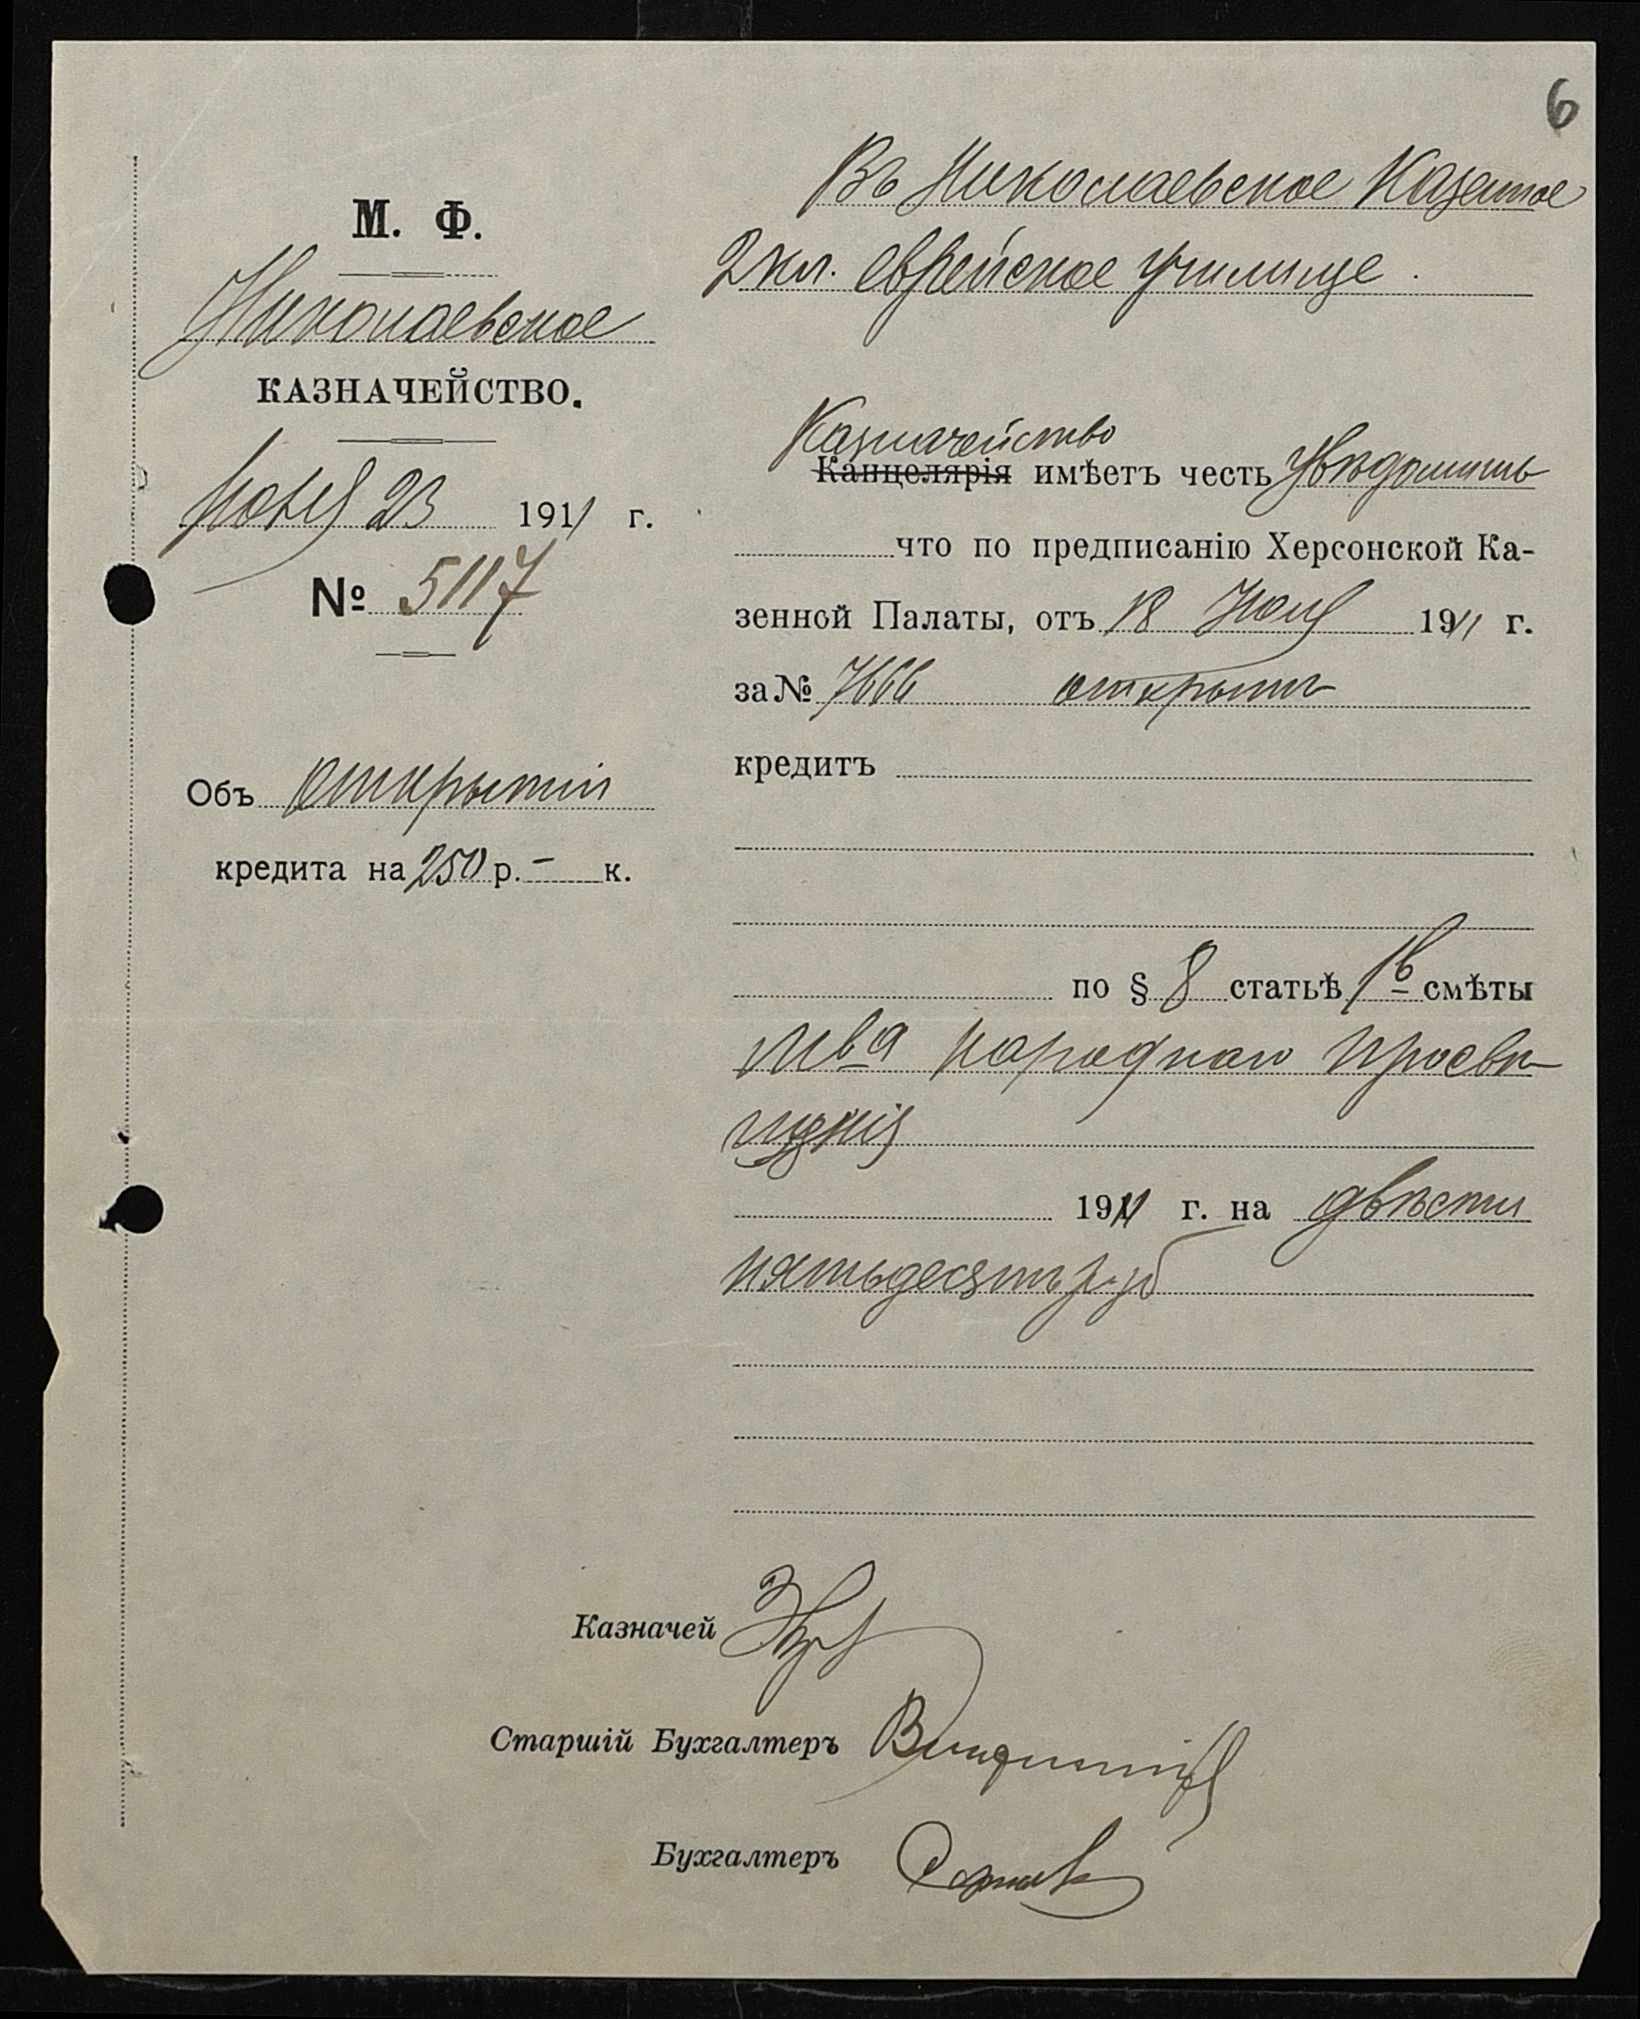 6
М. Ф.
Николаевское
КАЗНАЧЕЙСТВО.
Июня 23 1911 г.
№ 5117
Объ открытіи
кредита на 250 р. - к.
Въ Николаевское Казенное
2 кл. еврейское училище.
Казначейство
Канцелярія имѣетъ честь увѣдомить
что по предписанію Херсонской Ка-
зенной Палаты, отъ 18 Июня 1911 г.
за № 7666 открытъ
кредитъ
по § 8 статьѣ 1 в смѣты
М-ва народнаго просвѣ-
щенія
1911 г. на двѣсти
пятьдесятъ руб
Казначей
Старшій Бухгалтеръ
Бухгалтеръ